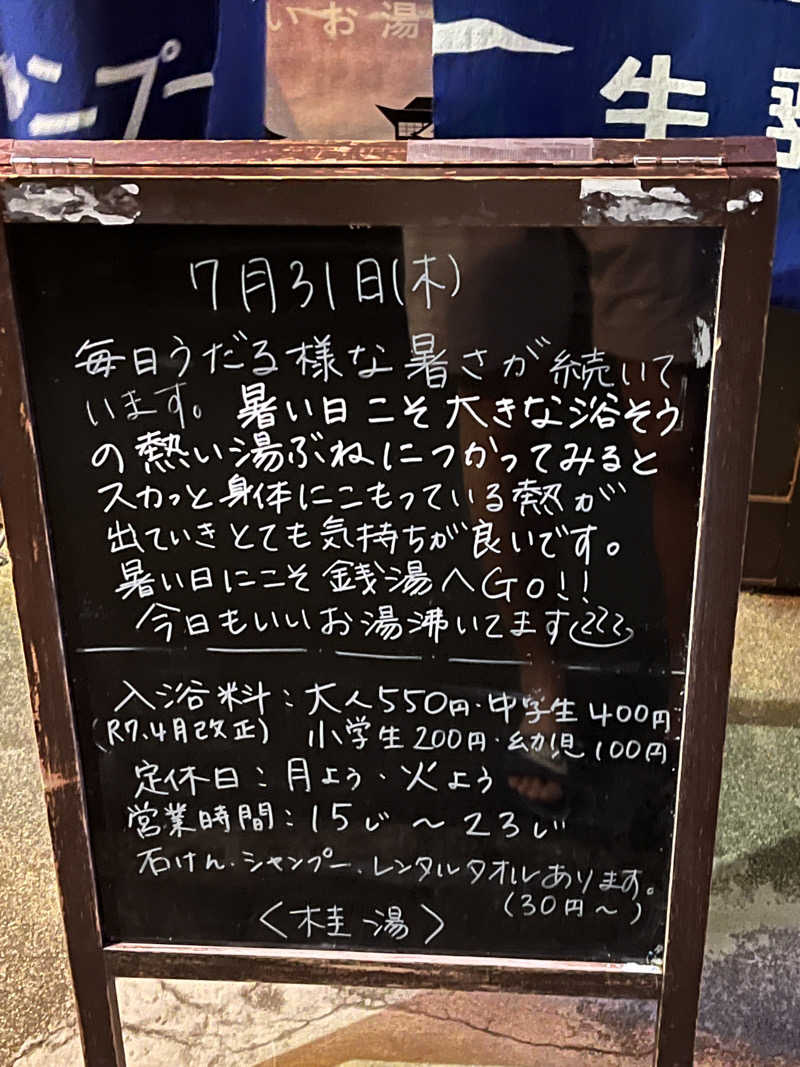 いお湯
ャンプー
牛
7月31日(木)
毎日うだる様な暑さが続いて
います。暑い日こそ大きな浴そう
の熱い湯ぶねにつかってみると
スカッと身体にこもっている熱が
出ていきとても気持ちが良いです。
暑い日にこそ銭湯へGO!!
今日もいいお湯沸いてます
入浴料:大人550円・中学生400円
(R7.4月改正) 小学生200円・幼児100円
定休日:月よう・火よう
営業時間:15じ〜23じ
石けん、シャンプー、レンタルタオルあります。
(30円〜)
〈桂湯〉